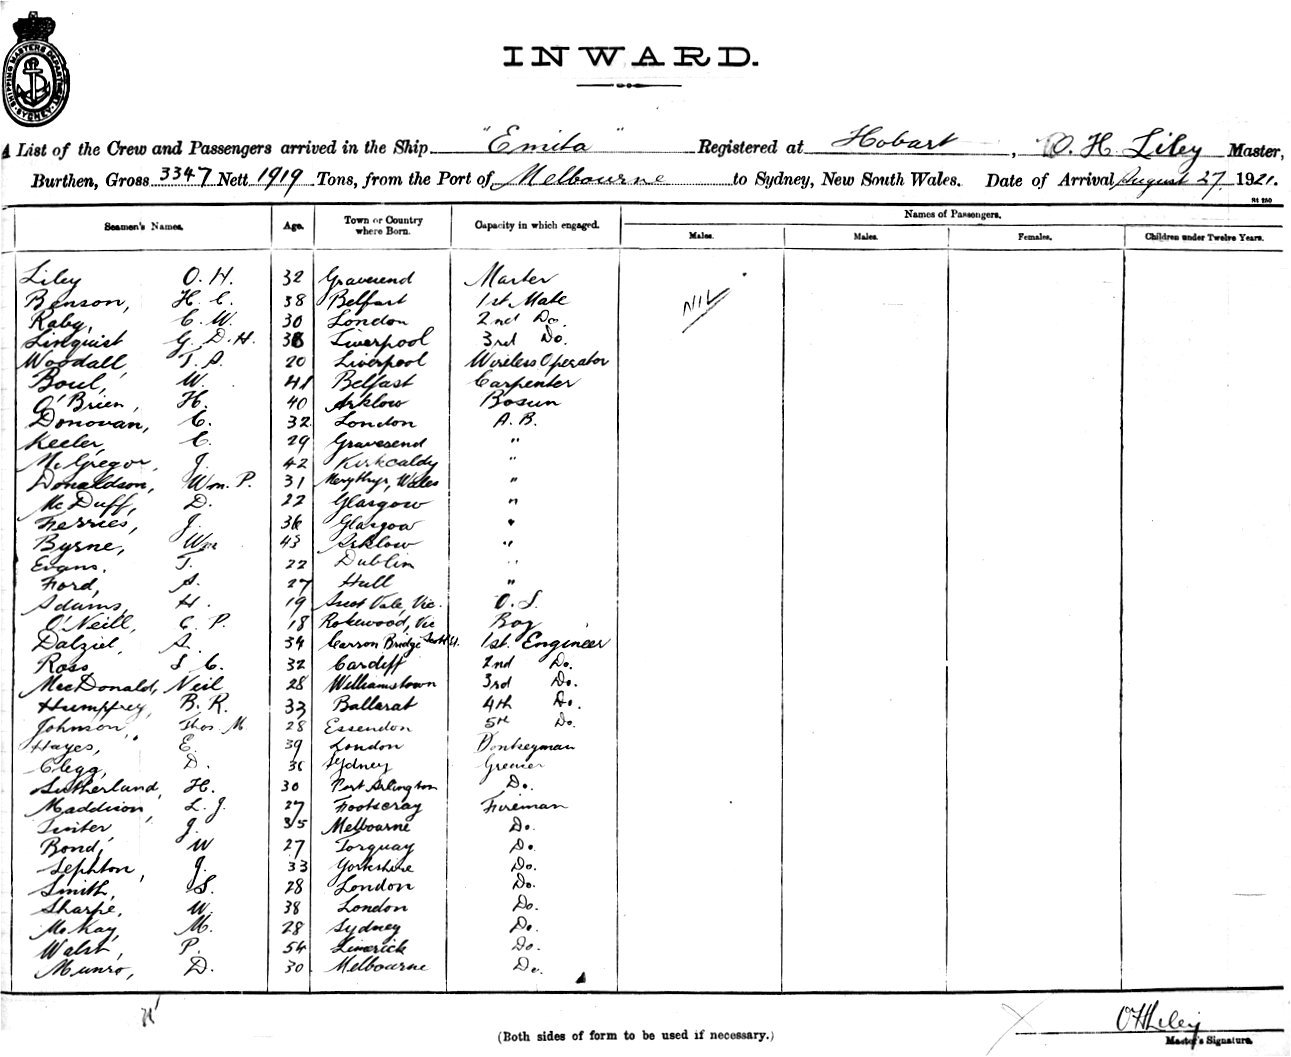 SHIPPING MASTERS DEPARTMENT SYDNEY
INWARD.
A List of the Crew and Passengers arrived in the Ship "Emita" Registered at Hobart, O. H. Liley Master,
Burthen, Gross 3347 Nett 1919 Tons, from the Port of Melbourne to Sydney, New South Wales. Date of Arrival August 27 1921.
Seamen's Names. Age. Town or Country where Born. Capacity in which engaged. Names of Passengers.
Males. Males. Females. Children under Twelve Years.
Liley O. H. 32 Gravesend Master NIL
Benson, H. C. 38 Belfast 1st Mate
Raby, C. W. 30 London 2nd Do.
Linquist G. D. H. 38 Liverpool 3rd Do.
Woodall, T. A. 20 Liverpool Wireless Operator
Boul, W. 41 Belfast Carpenter
O'Brien, H. 40 Arklow Bosun
Donovan, C. 32 London A. B.
Keeler, C. 29 Gravesend "
McGregor, J. 42 Kirkcaldy "
Donaldson, Wm. P. 31 Merythyr, Wales "
McDuff, D. 22 Glasgow "
Ferries, J. 36 Glasgow "
Byrne, Wm 43 Arklow "
Evans, T. 22 Dublin "
Ford, A. 27 Hull "
Adams, H. 19 Ascot Vale, Vic. O. S.
O'Neill, C. P. 18 Rokewood, Vic Boy
Dalziel, A. 34 Carron Bridge 1st. Engineer
Ross S C. 32 Cardiff 2nd Do.
MacDonald, Neil 28 Williamstown 3rd Do.
Humpfrey, B. R. 33 Ballarat 4th Do.
Johnson, Thos. M 28 Essendon 5th Do.
Hayes, E. 39 London Donkeyman
Clegg, D. 31 Sydney Greaser
Sutherland, H. 30 Port Arlington Do.
Maddison, L. J. 27 Footscray Fireman
J. 35 Melbourne Do.
Bond, W 27 Torquay Do.
Sephton, J. 33 Yorkshire Do.
Smith, S. 28 London Do.
Sharpe, W. 38 London Do.
McKay, M. 28 Sydney Do.
Walsh, P. 54 Limerick Do.
Munro, D. 30 Melbourne Do.
OHLiley
(Both sides of form to be used if necessary.) Master's Signature.